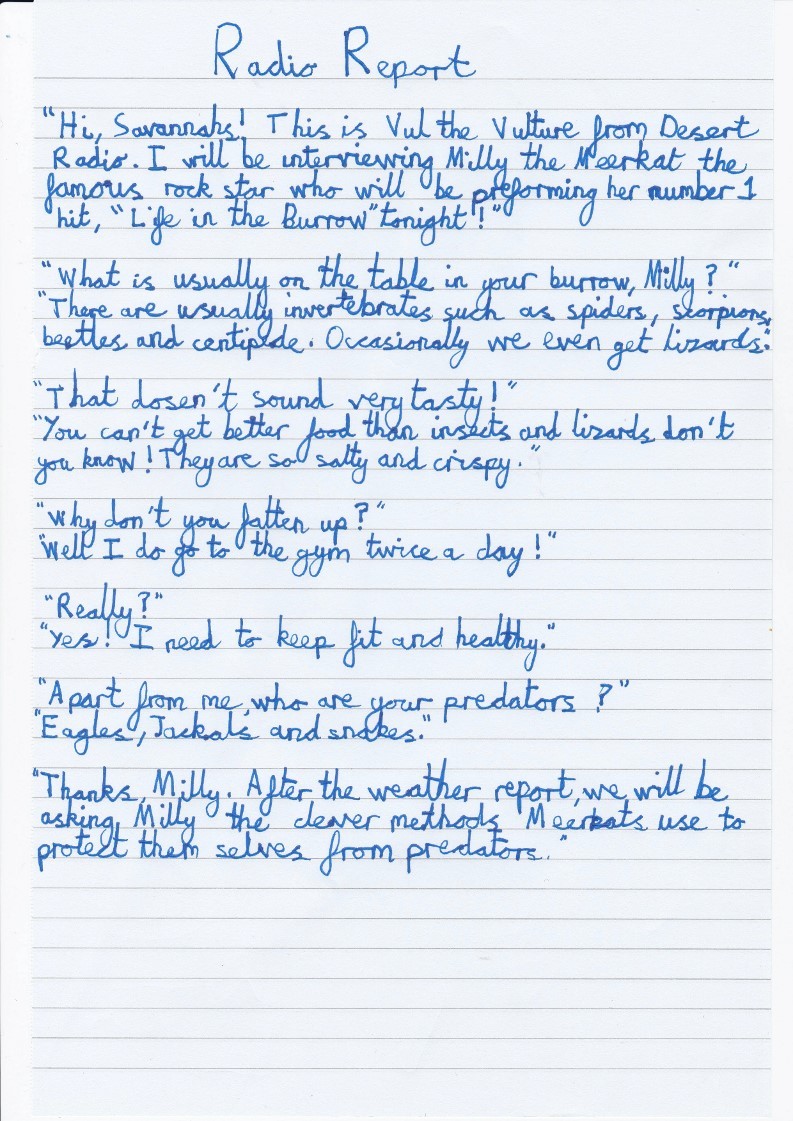 Radio Report
"Hi, Savannahs! This is Vul the Vulture from Desert
Radio. I will be interviewing Milly the Meerkat the
famous rock star who will be preforming her number 1
hit, "Life in the Burrow" tonight!"
"What is usually on the table in your burrow, Milly?"
"There are usually invertebrates such as spiders, scorpions,
beetles and centipede. Occasionally we even get lizards."
"That dosen't sound very tasty!"
"You can't get better food than insects and lizards don't
you know! They are so salty and crispy."
"Why don't you fatten up?"
"Well I do go to the gym twice a day!"
"Really?"
"Yes! I need to keep fit and healthy."
"Apart from me, who are your predators?"
"Eagles, Jackals and snakes."
"Thanks, Milly. After the weather report, we will be
asking Milly the clever methods Meerkats use to
protect them selves from predators."